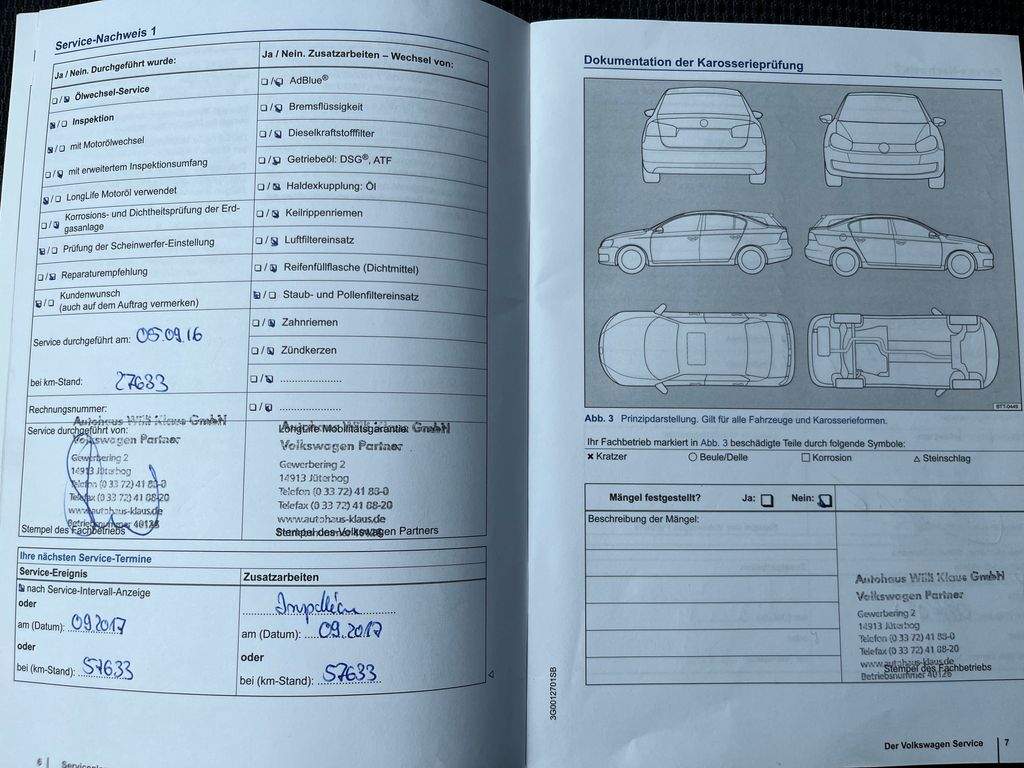 Service-Nachweis 1
Ja / Nein. Durchgeführt wurde:
Ölwechsel-Service
Inspektion
mit Motorölwechsel
mit erweitertem Inspektionsumfang
LongLife Motoröl verwendet
Korrosions- und Dichtheitsprüfung der Erd-
gasanlage
Prüfung der Scheinwerfer-Einstellung
Reparaturempfehlung
Kundenwunsch
(auch auf dem Auftrag vermerken)
Service durchgeführt am: 05.09.16
bei km-Stand: 27633
Rechnungsnummer:
Service durchgeführt von:
Autohaus Willi Klaus GmbH
Volkswagen Partner
Gewerbering 2
14913 Jüterbog
Telefon (0 33 72) 41 88-0
Telefax (0 33 72) 41 88-20
www.autohaus-klaus.de
Betriebsnummer 40126
Stempel des Fachbetriebs
Ja / Nein. Zusatzarbeiten – Wechsel von:
AdBlue®
Bremsflüssigkeit
Dieselkraftstofffilter
Getriebeöl: DSG®, ATF
Haldexkupplung: Öl
Keilrippenriemen
Luftfiltereinsatz
Reifenfüllflasche (Dichtmittel)
Staub- und Pollenfiltereinsatz
Zahnriemen
Zündkerzen
LongLife Mobilitätsgarantie
Autohaus Willi Klaus GmbH
Volkswagen Partner
Gewerbering 2
14913 Jüterbog
Telefon (0 33 72) 41 88-0
Telefax (0 33 72) 41 88-20
www.autohaus-klaus.de
Stempel des Volkswagen Partners
Ihre nächsten Service-Termine
Service-Ereignis
nach Service-Intervall-Anzeige
oder
am (Datum): 09.2017
oder
bei (km-Stand): 57633
Zusatzarbeiten
Inspektion
am (Datum): 09.2017
oder
bei (km-Stand): 57633
6
Dokumentation der Karosserieprüfung
BTT-0449
Abb. 3 Prinzipdarstellung. Gilt für alle Fahrzeuge und Karosserieformen.
Ihr Fachbetrieb markiert in Abb. 3 beschädigte Teile durch folgende Symbole:
× Kratzer ○ Beule/Delle □ Korrosion △ Steinschlag
Mängel festgestellt? Ja: Nein:
Beschreibung der Mängel:
Autohaus Willi Klaus GmbH
Volkswagen Partner
Gewerbering 2
14913 Jüterbog
Telefon (0 33 72) 41 88-0
Telefax (0 33 72) 41 88-20
www.autohaus-klaus.de
Stempel des Fachbetriebs
Betriebsnummer 40126
3G0012701SB
Der Volkswagen Service 7